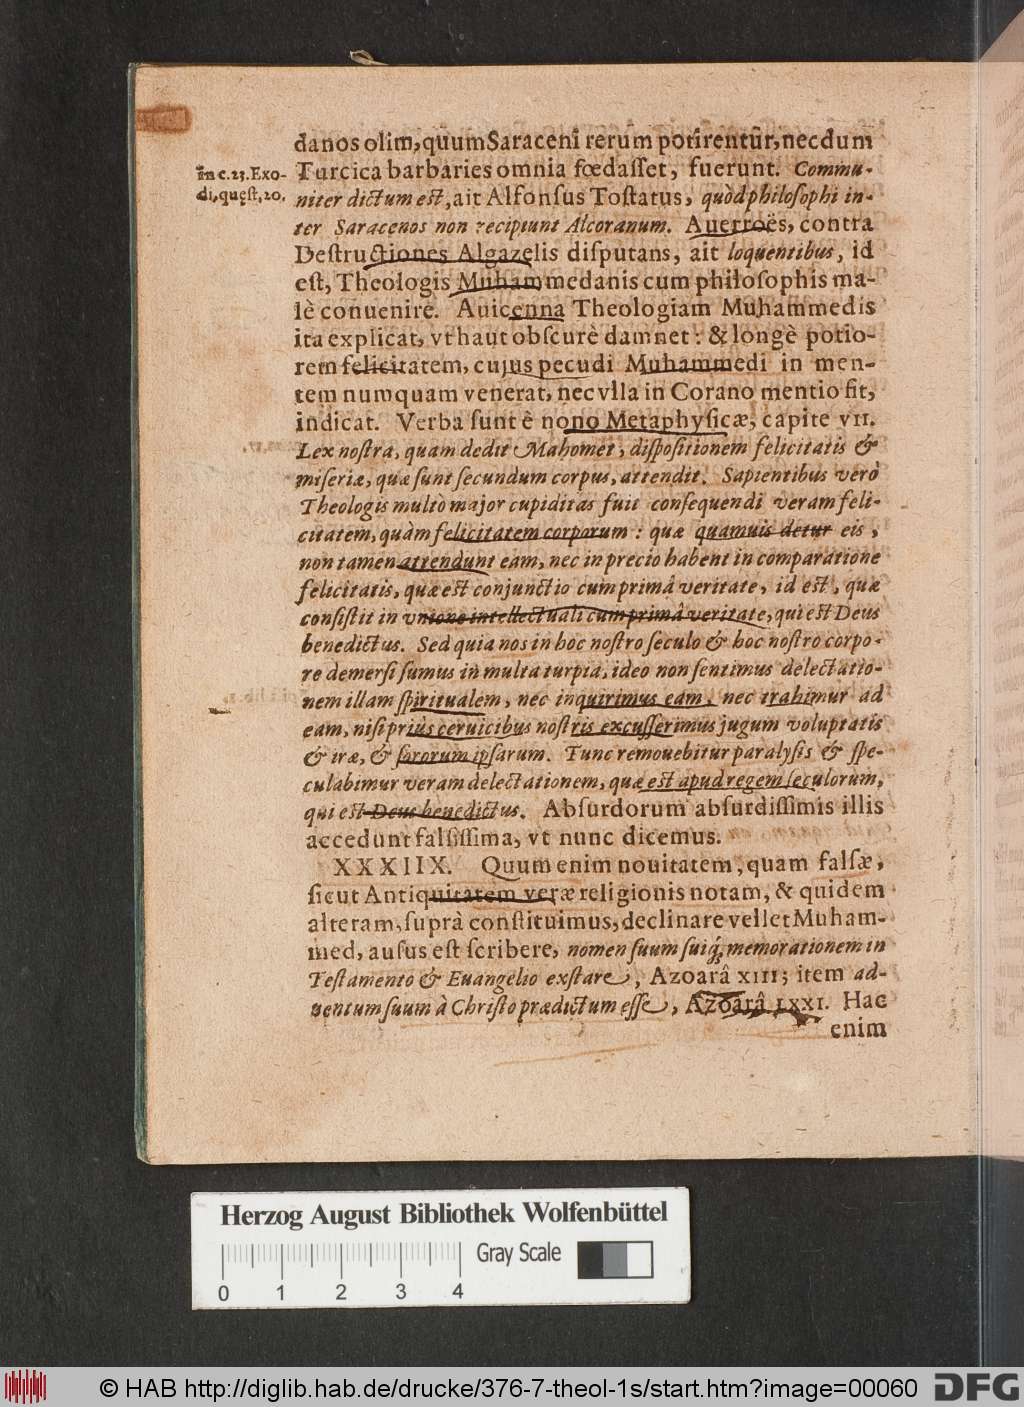 danos olim, quum Saraceni rerum potirentur, necdum
In c. 23. Exo-
di, quęst. 20.
Turcica barbaries omnia fœdasset, fuerunt. Commu-
niter dictum est, ait Alfonsus Tostatus, quòd philosophi in-
ter Saracenos non recipiunt Alcoranum. Auerroës, contra
Destructiones Algazelis disputans, ait loquentibus, id
est, Theologis Muhammedanis cum philosophis ma-
lè conuenire. Auicenna Theologiam Muhammedis
ita explicat, vt haut obscurè damnet: & longè potio-
rem felicitatem, cujus pecudi Muhammedi in men-
tem numquam venerat, nec vlla in Corano mentio fit,
indicat. Verba sunt è nono Metaphysicæ, capite VII.
Lex nostra, quam dedit Mahomet, dispositionem felicitatis &
miseriæ, quæ sunt secundum corpus, attendit. Sapientibus verò
Theologis multò major cupiditas fuit consequendi veram feli-
citatem, quàm felicitatem corporum: quæ quamuis detur eis,
non tamen attendunt eam, nec in precio habent in comparatione
felicitatis, quæ est conjunctio cum primâ veritate, id est, quæ
consistit in vnione intellectuali cum primâ veritate, qui est Deus
benedictus. Sed quia nos in hoc nostro seculo & hoc nostro corpo-
re demersi sumus in multa turpia, ideo non sentimus delectatio-
nem illam spiritualem, nec inquirimus eam, nec trahimur ad
eam, nisi priùs ceruicibus nostris excusserimus jugum voluptatis
& iræ, & sororum ipsarum. Tunc remouebitur paralysis & spe-
culabimur veram delectationem, quæ est apud regem seculorum,
qui est Deus benedictus. Absurdorum absurdissimis illis
accedunt falsissima, vt nunc dicemus.
XXXIIX. Quum enim nouitatem, quam falsæ,
sicut Antiquitatem veræ religionis notam, & quidem
alteram, suprà constituimus, declinare vellet Muham-
med, ausus est scribere, nomen suum suiq́; memorationem in
Testamento & Euangelio exstare, Azoarâ XIII; item ad-
uentum suum à Christo prædictum esse, Azoarâ LXXI. Hac
enim
Herzog August Bibliothek Wolfenbüttel
Gray Scale
0 1 2 3 4
© HAB http://diglib.hab.de/drucke/376-7-theol-1s/start.htm?image=00060
DFG